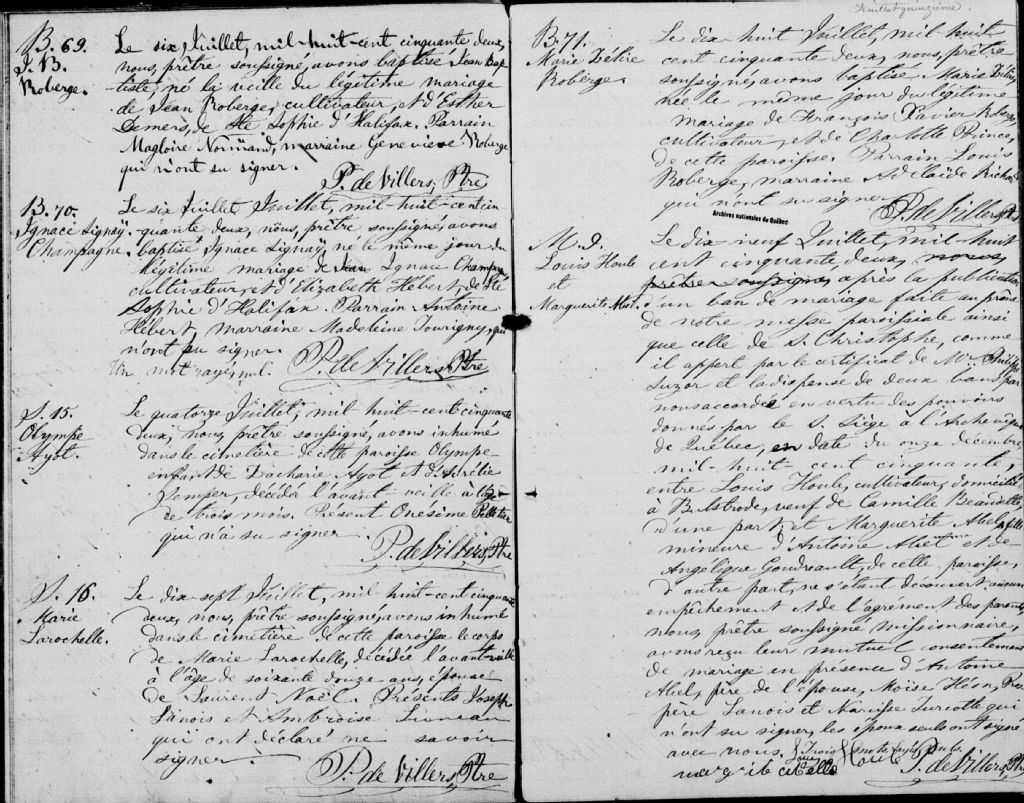 B. 69.
J. B.
Roberge.
Le six Juillet, mil-huit-cent cinquante deux,
nous, prêtre soussigné, avons baptisé Jean Bap-
tiste, né la veille du légitime mariage
de Jean Roberge, cultivateur, et d'Esther
Demers, de Ste Sophie d'Halifax. Parrain
Magloire Normand, marraine Geneviève Roberge
qui n'ont su signer.
P. de Villers, Ptre
B. 70.
Ignace Signaÿ
Champagne.
Le six Juillet Juillet, mil-huit-cent cin-
quante deux, nous, prêtre soussigné, avons
baptisé Ignace Signaÿ, né le même jour du
légitime mariage de Jean Ignace Champagne,
cultivateur, et d'Elizabeth Hébert, de Ste
Sophie d'Halifax. Parrain Antoine
Hébert, marraine Madeleine Tourigny, qui
n'ont su signer.
Un mot rayé, nul.
P. de Villers Ptre
S. 15.
Olympe
Ayot.
Le quatorze Juillet, mil huit-cent cinquante
deux, nous, prêtre soussigné, avons inhumé
dans le cimetière de cette paroisse Olympe
enfant de Zacharie Ayot et d'Aurélie
décédée l'avant-veille à l'âge
de trois mois. Présent Onésime Pelletier
qui n'a su signer.
P. de Villers, Ptre
S. 16.
Marie
Larochelle.
Le dix sept Juillet, mil huit-cent cinquante
deux, nous, prêtre soussigné, avons inhumé
dans le cimetière de cette paroisse le corps
de Marie Larochelle, décédée l'avant-veille
à l'âge de soixante douze ans, épouse
de Laurent Noël. Présents Joseph
Lanois et Ambroise
qui ont déclaré ne savoir
signer.
P. de Villers, Ptre
Feuillet quinzième.
B. 71.
Marie Zélire
Roberge.
Le dix huit Juillet, mil-huit
cent cinquante deux, nous, prêtre
soussigné, avons baptisé Marie Zélire
née le même jour du légitime
mariage de François Xavier Roberge
cultivateur, et de Charlotte Prince,
de cette paroisse. Parrain Louis
Roberge, marraine Adelaïde
qui n'ont su signer.
P. de Villers, Ptre
Archives nationales du Québec
M. 9.
Louis Houle
et
Marguerite Abel.
Le dix neuf Juillet, mil-huit
cent cinquante deux, nous,
prêtre soussigné, après la publication
d'un ban de mariage faite au prône
de notre messe paroissiale ainsi
que celle de S. Christophe, comme
il appert par le certificat de Mr Philippe
Suzor et la dispense de deux bans par
nous accordée en vertu des pouvoirs
donnés par le S. Siège à l'Archevêque
de Québec, en date du onze décembre
mil-huit-cent cinquante,
entre Louis Houle, cultivateur, domicilié
à Bulstrode, veuf de Camille Beaudette,
d'une part, et Marguerite Abel, fille
mineure d'Antoine Abel et de
Angélique Goudreault, de cette paroisse,
d'autre part, ne s'étant découvert aucun
empêchement et de l'agrément des parents,
nous, prêtre soussigné missionnaire,
avons reçu leur mutuel consentement
de mariage en présence d'Antoine
Abel, père de l'épouse, Moïse Héon,
père Lanois et Narcisse Turcotte qui
n'ont su signer, les époux seuls ont signé
avec nous. Trois mots rayés, nuls.
Louis Houle
P. de Villers, Ptre